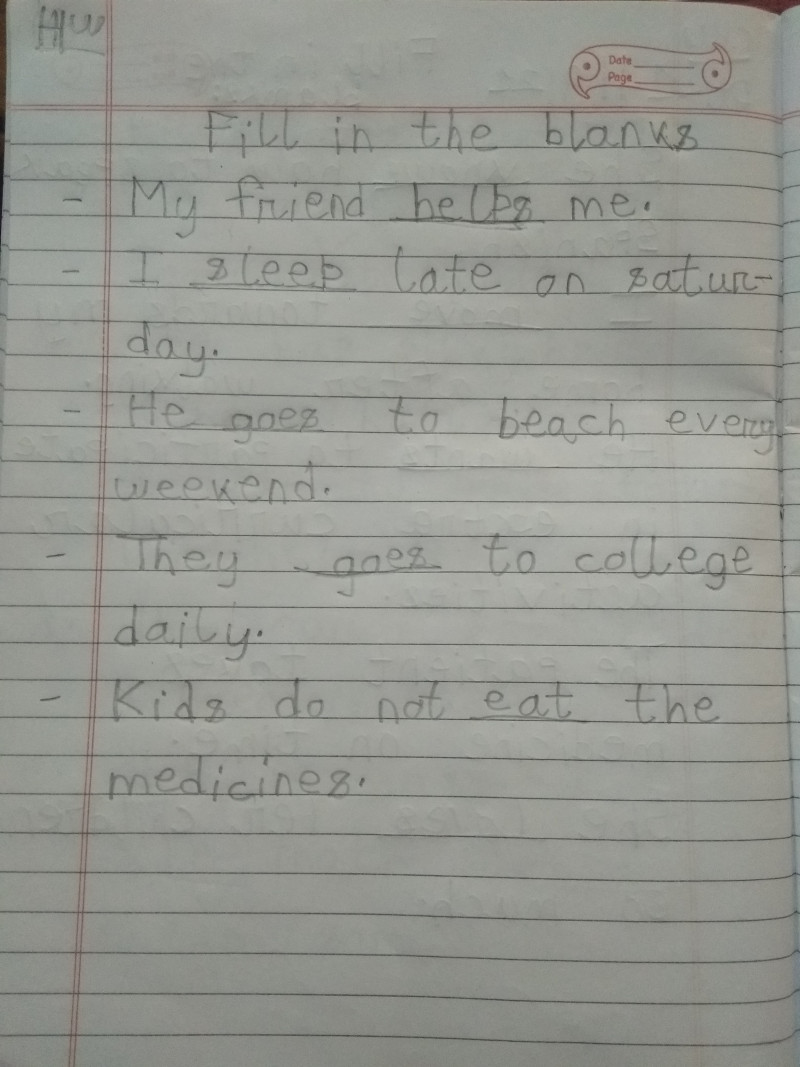 H/W
Date
Page
Fill in the blanks
- My friend helps me.
- I sleep late on satur-
day.
- He goes to beach every
weekend.
- They goes to college
daily.
- Kids do not eat the
medicines.